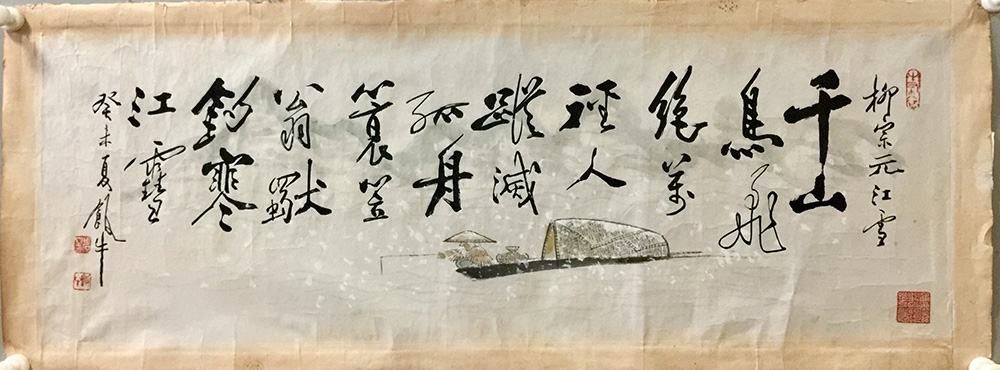 柳宗元江雪
千山
鳥飛
絕萬
徑人
蹤滅
孤舟
蓑笠
翁獨
釣寒
江雪
癸未夏牛